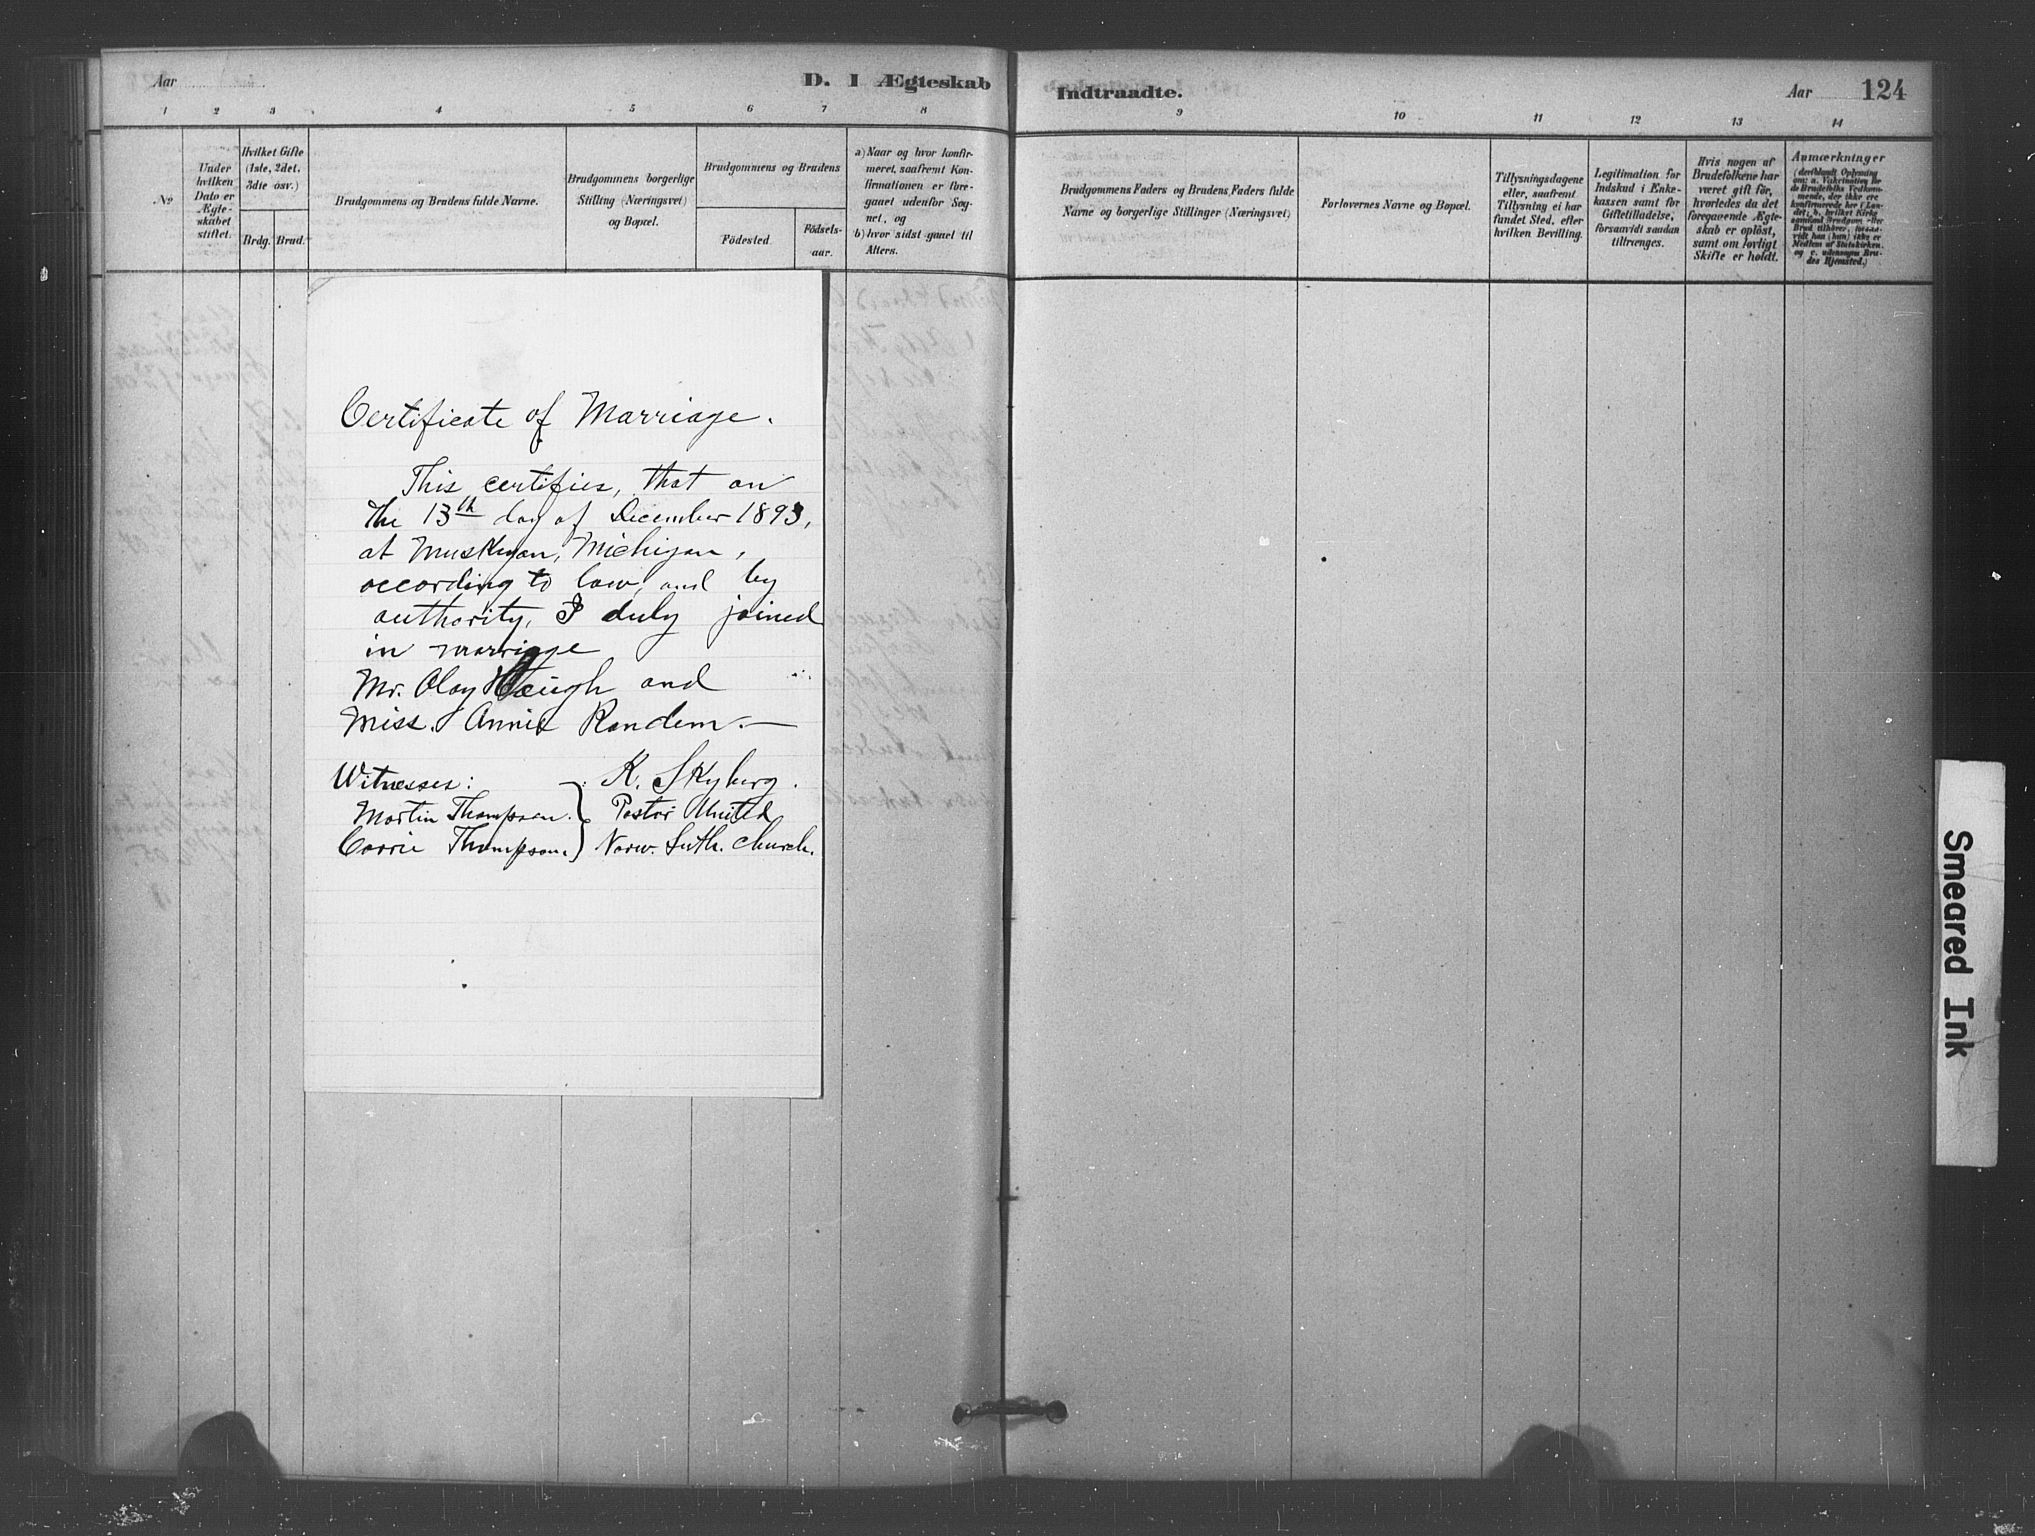 Aar
D. I Ægteskab
Indtraadte.
Aar 124
1 2 3 4 5 6 7 8
9 10 11 12 13 14
No
Under hvilken Dato er Ægteskabet stiftet.
Hvilket Gifte (1ste, 2det, 3die osv.)
Brdg. Brud.
Brudgommens og Brudens fulde Navne.
Brudgommens borgerlige
Stilling (Næringsvei)
og Bopæl.
Brudgommens og Brudens
Födested.
Födsels-
aar.
a) Naar og hvor konfir-
meret, saafremt Kon-
firmationen er fore-
gaaet udenfor Sog-
net, og
b) hvor sidst gaaet til
Alters.
Brudgommens Faders og Brudens Faders fulde
Navne og borgerlige Stillinger (Næringsvei)
Forlovernes Navne og Bopæl.
Tillysningsdagene
eller, saafremt
Tillysning ei har
fundet Sted, efter
hvilken Bevilling.
Legitimation for
Indskud i Enke-
kassen samt for
Giftetilladelse,
forsaavidt saadan
tiltrænges.
Hvis nogen af
Brudefolkene har
været gift för,
hvorledes da det
foregaaende Ægte-
skab er oplöst,
samt om lovligt
Skifte er holdt.
Anmærkninger
Certificate of Marriage.
This certifies, that on
the 13th day of December 1893,
at Muskegon, Michigan,
according to law, and by
authority, I duly joined
in marriage
Mr. Olay Haugh and
Miss. Annie Randem. —
Witnesses:
Martin Thompson.
Carrie Thompson.
K. Skyberg.
Pastor United
Norw. Luth. Church.
Smeared Ink